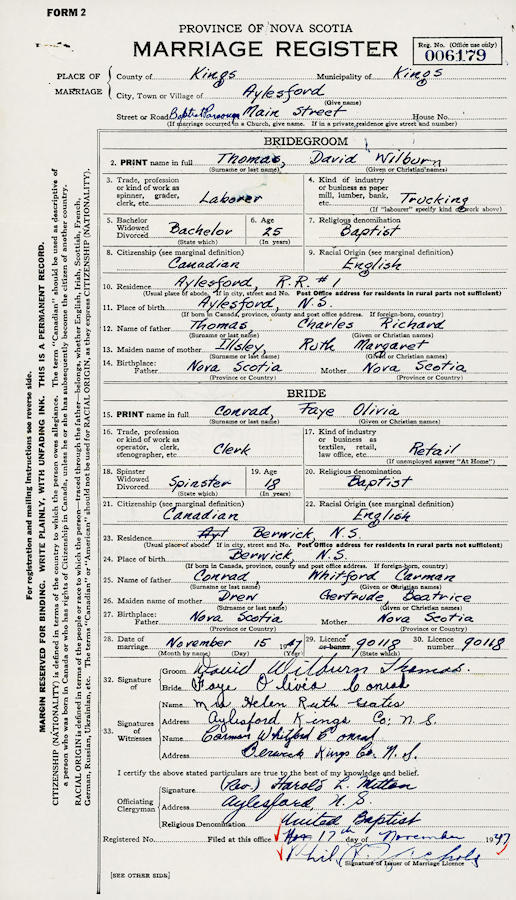 FORM 2
PROVINCE OF NOVA SCOTIA
MARRIAGE REGISTER
Reg. No. (Office use only)
006179
PLACE OF MARRIAGE
County of Kings Municipality of Kings
City, Town or Village of Aylesford
(Give name)
Street or Road Baptist Parsonage Main Street House No.
(If marriage occurred in a Church, give name. If in a private residence give street and number)
BRIDEGROOM
2. PRINT name in full Thomas, David Wilburn
(Surname or last name) (Given or Christian names)
3. Trade, profession or kind of work as spinner, grader, clerk, etc. Laborer
4. Kind of industry or business as paper mill, lumber, bank, etc. Trucking
(If "labourer" specify kind of work above)
5. Bachelor Widowed Divorced Bachelor
(State which)
6. Age 25
(In years)
7. Religious denomination
Baptist
8. Citizenship (see marginal definition)
Canadian
9. Racial Origin (see marginal definition)
English
10. Residence Aylesford, R.R. #1
(Usual place of abode. If in city, street and No. Post Office address for residents in rural parts not sufficient)
11. Place of birth Aylesford, N.S.
(If born in Canada, province, county and post office address. If foreign-born, country)
12. Name of father Thomas, Charles Richard
(Surname or last name) (Given or Christian names)
13. Maiden name of mother Illsley, Ruth Margaret
(Surname or last name) (Given or Christian names)
14. Birthplace: Father Nova Scotia Mother Nova Scotia
(Province or Country) (Province or Country)
BRIDE
15. PRINT name in full Conrad, Faye Olivia
(Surname or last name) (Given or Christian names)
16. Trade, profession or kind of work as operator, clerk, stenographer, etc. Clerk
17. Kind of industry or business as textiles, retail, law office, etc. Retail
(If unemployed answer "At Home")
18. Spinster Widowed Divorced Spinster
(State which)
19. Age 18
(In years)
20. Religious denomination
Baptist
21. Citizenship (see marginal definition)
Canadian
22. Racial Origin (see marginal definition)
English
23. Residence Ayl Berwick, N.S.
(Usual place of abode. If in city, street and No. Post Office address for residents in rural parts not sufficient)
24. Place of birth Berwick, N.S.
(If born in Canada, province, county and post office address. If foreign-born, country)
25. Name of father Conrad Whitford Carman
(Surname or last name) (Given or Christian names)
26. Maiden name of mother Drew Gertrude Beatrice
(Surname or last name) (Given or Christian names)
27. Birthplace: Father Nova Scotia Mother Nova Scotia
(Province or Country) (Province or Country)
28. Date of marriage November 15 1947
(Month by name) (Day) (Year)
29. Licence or banns 90118
(State which)
30. Licence number 90118
32. Signature of
Groom David Wilburn Thomas.
Bride Faye Olivia Conrad
33. Signatures of Witnesses
Name Mrs Helen Ruth
Address Aylesford Kings Co; N.S.
Name Carman Whitford Conrad
Address Berwick Kings Co. N.S.
I certify the above stated particulars are true to the best of my knowledge and belief.
Officiating Clergyman
Signature (Rev.) Harold L. Mitton
Address Aylesford, N.S.
Religious Denomination United Baptist
Registered No. Filed at this office Nov 17th day of November 1947
Phil Nichols
Signature of Issuer of Marriage Licence
[SEE OTHER SIDE]
For registration and mailing instructions see reverse side.
MARGIN RESERVED FOR BINDING. WRITE PLAINLY, WITH UNFADING INK. THIS IS A PERMANENT RECORD.
CITIZENSHIP (NATIONALITY) is defined in terms of the country to which the person owes allegiance. The term "Canadian" should be used as descriptive of
a person who was born in Canada or who has rights of Citizenship in Canada, unless he or she has subsequently become the citizen of another country.
RACIAL ORIGIN is defined in terms of the people or race to which the person—traced through the father—belongs, whether English, Irish, Scottish, French,
German, Russian, Ukrainian, etc. The terms "Canadian" or "American" should not be used for RACIAL ORIGIN, as they express CITIZENSHIP (NATIONALITY).